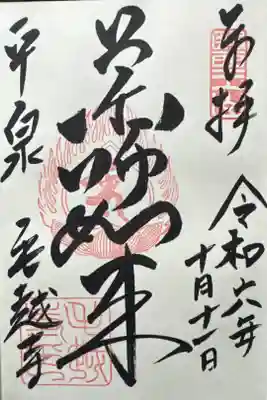 奉拝
令和六年
十月十一日
薬師如来
平泉 毛越寺